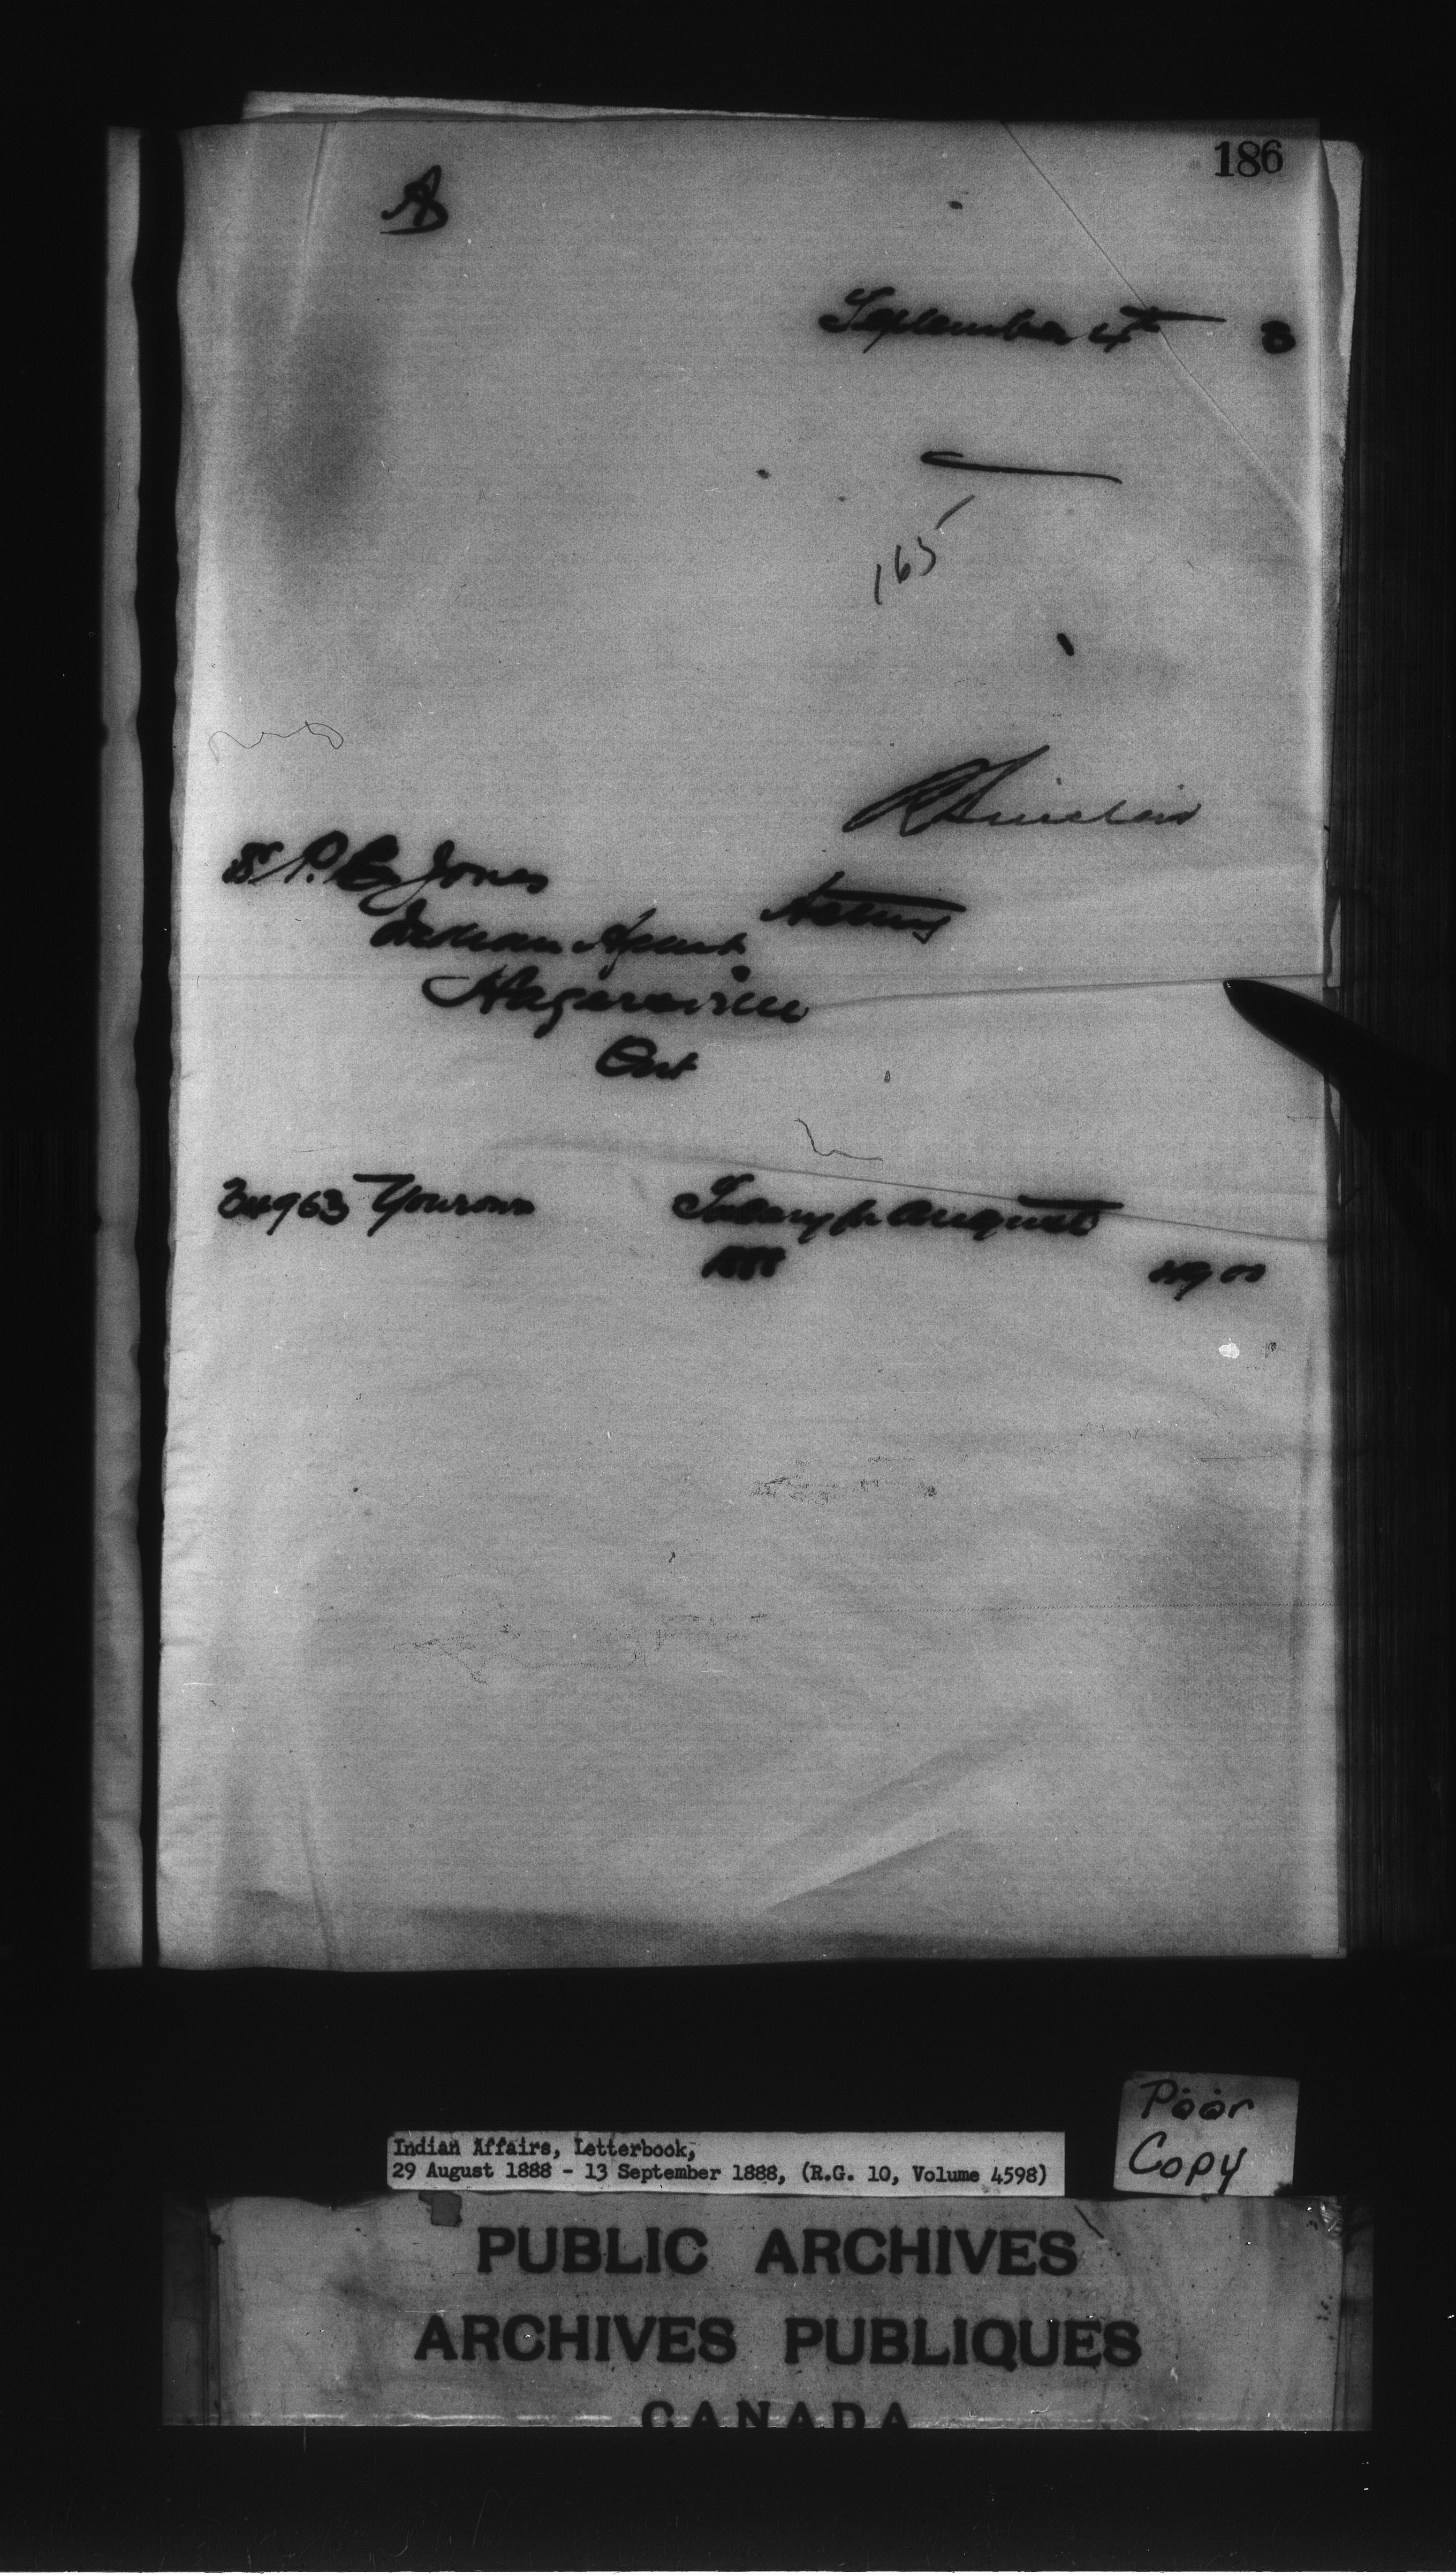 186
A
September 4th 8
165
R Sinclair
Dr P. E. Jones
Acting
Indian Agent
Hagersville
Ont
Yourown Salary for August
1888 49 00
Poor
Copy
Indian Affairs, Letterbook,
29 August 1888 - 13 September 1888, (R.G. 10, Volume 4598)
PUBLIC ARCHIVES
ARCHIVES PUBLIQUES
CANADA